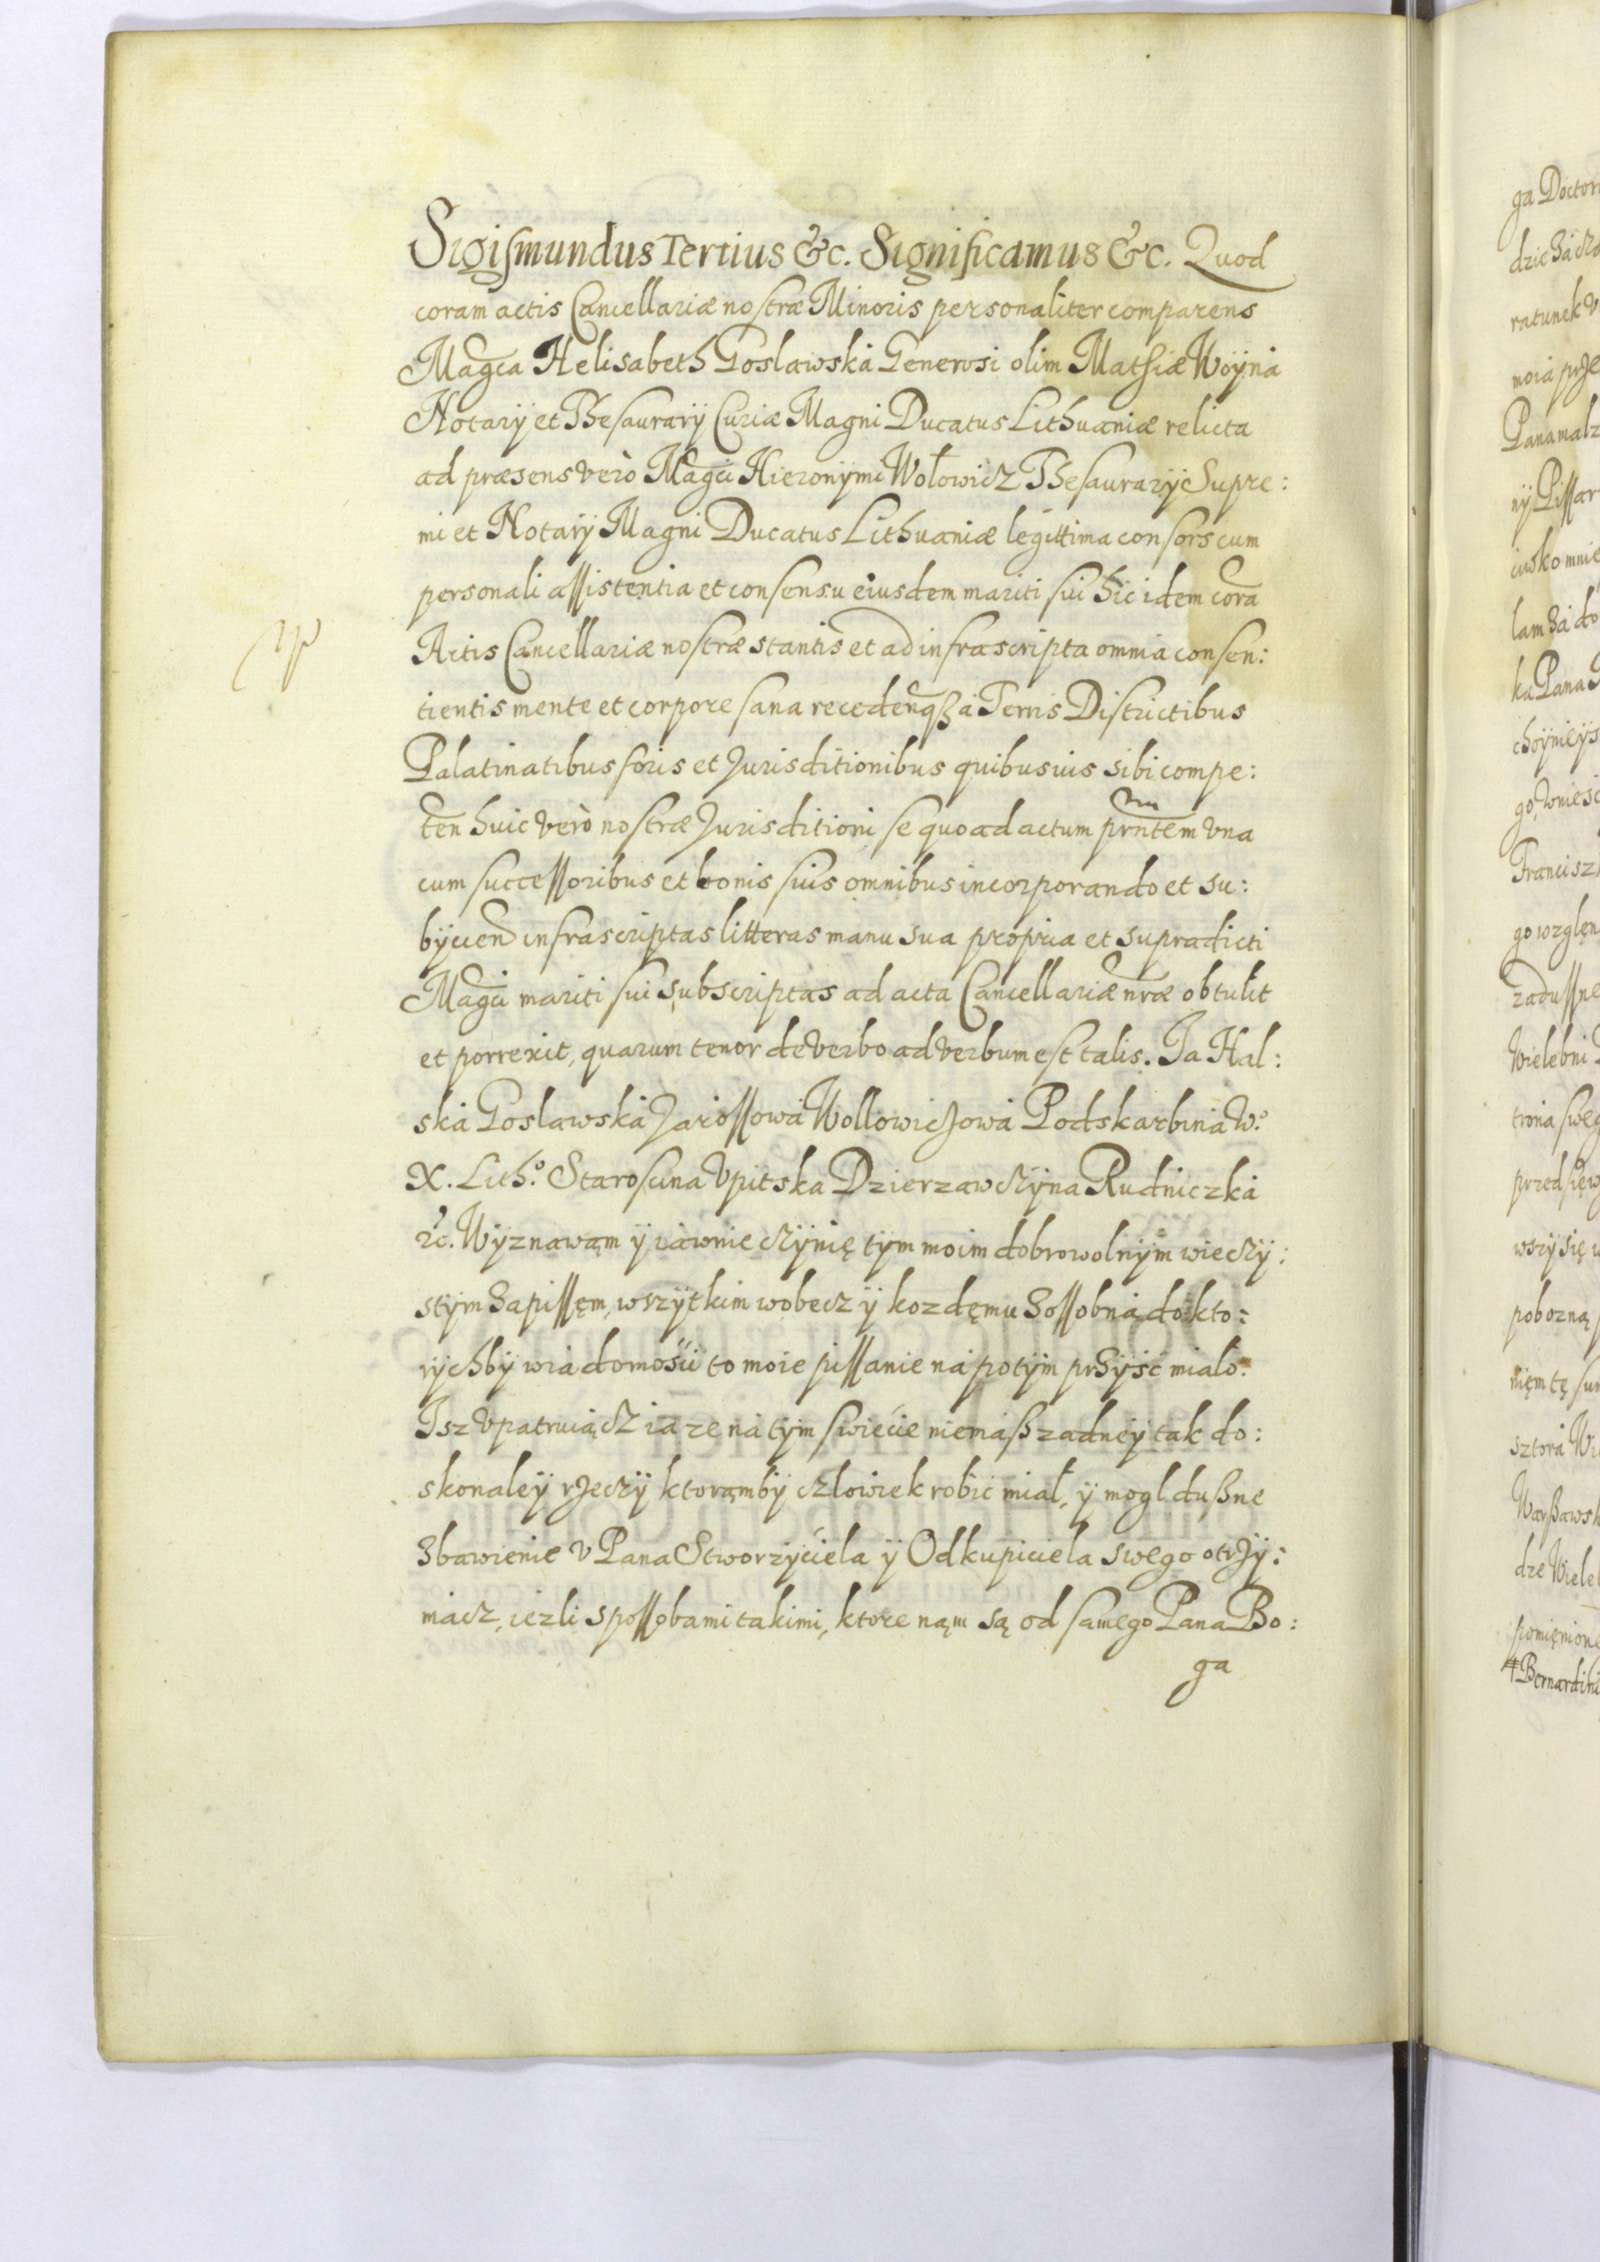 Sigismundus Tertius &c. Significamus &c. Quod
coram actis Cancellariæ nostræ Minoris personaliter comparens
Magca Helisabeth Goslawská Generosi olim Mathiæ Woÿná
Notarÿ et Thesaurarÿ Curiæ Magni Ducatus Lithuaniæ relicta
ad præsens verò Magci Hieronÿmi Wołowicz Thesaurarÿ Supre:
mi et Notarÿ Magni Ducatus Lithuaniæ legittima consors cum
personali assistentia et consensu eiusdem mariti sui hic idem corã
Actis Cancellariæ nostræ stantis et ad infrascripta omnia consen:
tientis mente et corpore sana recedenqз à Terris Districtibus
Palatinatibus foris et Jurisditionibus quibusuis sibi compe:
ten huic verò nostræ Jurisditioni se quo ad actum prntem vna
cum successoribus et bonis suis omnibus incorporando et su:
bÿcien infrascriptas litteras manu sua propria et supradicti
Magci mariti sui subscriptas ad acta Cancellariæ nræ obtulit
et porrexit, quarum tenor de verbo ad verbum est talis. Ja Hal:
ská Goslawská Jarossowá Wollowiczowá Podskarbiná W.º
X. Lith.º Staroscina Vpitska Dzierzawczÿna Rudniczká
&c. Wÿznawąm ÿ iáwnie czÿnię tÿm moim dobrowolnÿm wieczÿ:
stÿm zapissęm, wszÿtkim wobecz ÿ kozdęmu zossobná do kto:
rÿchbÿ wiadomośći to moie pissanie ná potÿm przÿść miało.
Jsz vpatruiącz ia ze ná tÿm swiećie niemáß zadneÿ tak do:
skonaleÿ rzeczÿ ktorąmbÿ człowiek robić miał, ÿ mogl dußne
zbawienie v Pana Stworzÿćiela ÿ Odkupiciela swego otrzÿ:
mácz, iezli spossobami takimi, ktore nąm są od samego Pana Bo:
ga